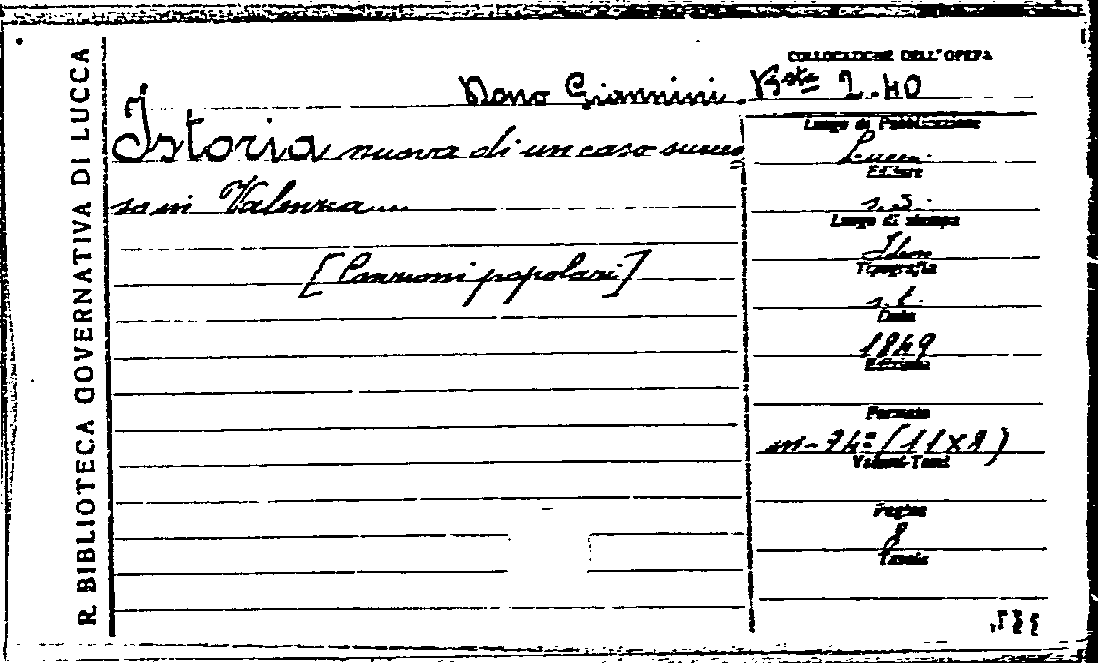 R. BIBLIOTECA GOVERNATIVA DI LUCCA
COLLOCAZIONE DELL'OPERA
Dono Giannini. Bsta 2.40
Istoria nuova di un caso succes=
so in Valenza...
[Canzoni popolari]
Luogo di Pubblicazione
Lucca.
Editore
s. s.
Luogo di stampa
Idem
Tipografia
s. t.
Data
1849
Edizione
Formato
in-24º (11x8)
Volumi-Tomi
Pagine
8
Tavole